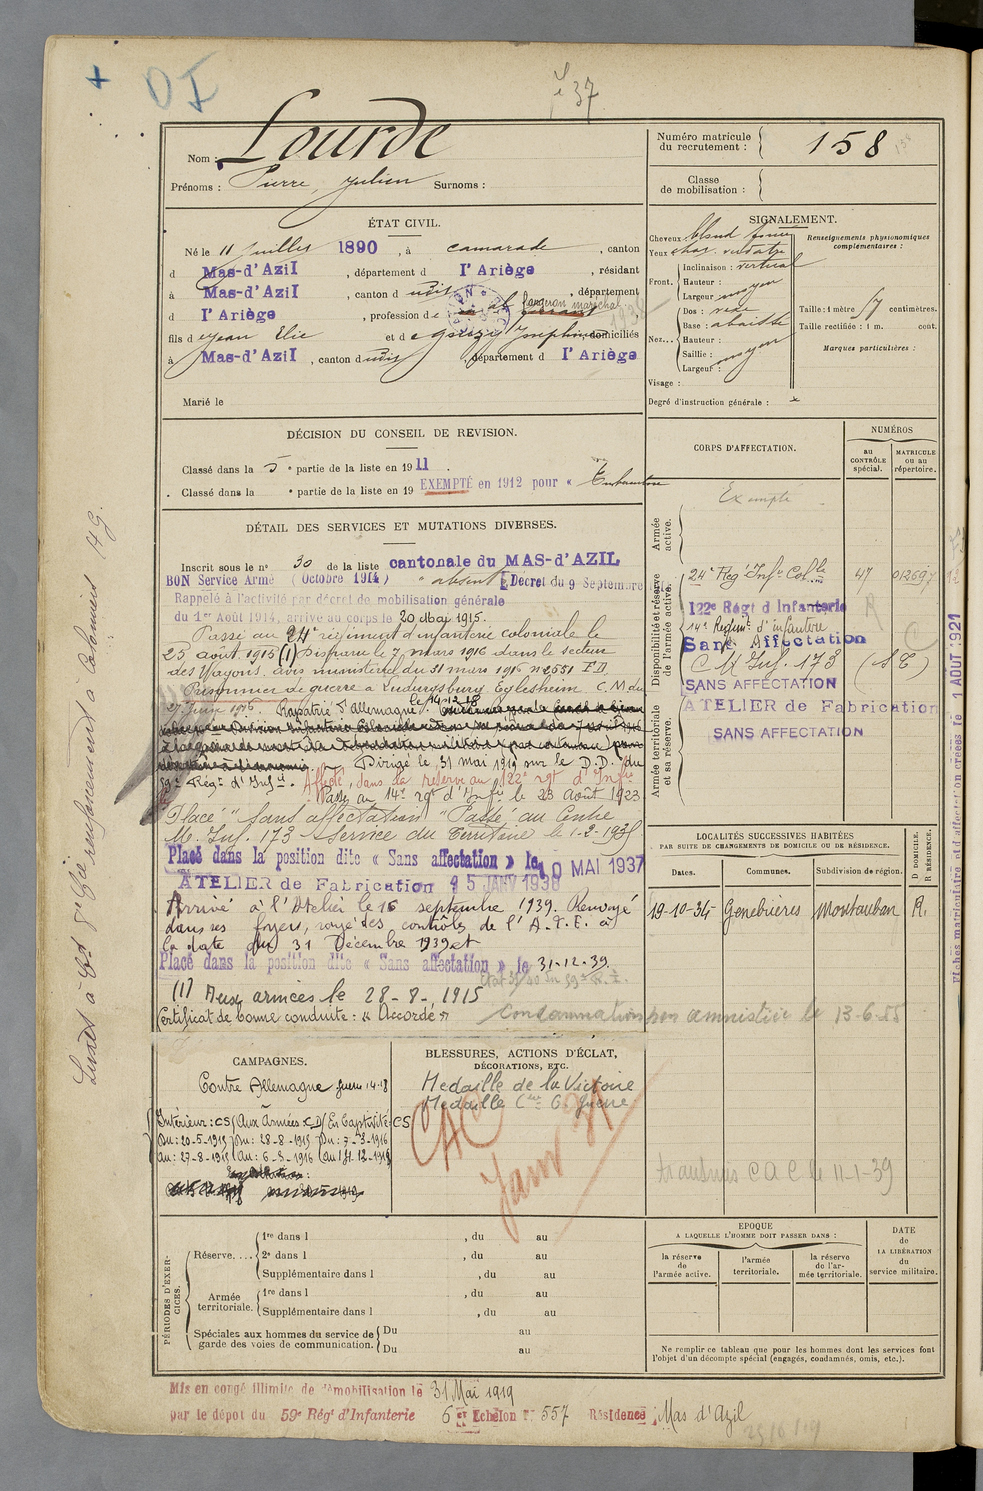 + DI
37
Nom : Lourde
Prénoms : Pierre, Julien Surnoms :
Numéro matricule du recrutement : 158
Classe de mobilisation :
ÉTAT CIVIL.
Né le 11 Juillet 1890, à Camarade, canton
d Mas-d'Azil, département d l'Ariège, résidant
à Mas-d'Azil, canton d udit, département
d l'Ariège, profession de
forgeron maréchal
fils d e Jean Elie et d e Josephine, domiciliés
à Mas-d'Azil, canton dudit, département d l'Ariège
Marié le
SIGNALEMENT.
Cheveux blond foncé
Yeux verdatre
Front. Inclinaison : vertical
Hauteur :
Largeur moyen
Nez... Dos :
Base : abaissée
Hauteur :
Saillie : moyen
Largeur :
Visage :
Degré d'instruction générale :
Renseignements physionomiques complémentaires :
Taille : 1 mètre 57 centimètres.
Taille rectifiée : 1 m. cent.
Marques particulières :
DÉCISION DU CONSEIL DE REVISION.
Classé dans la 5e partie de la liste en 1911.
Classé dans la e partie de la liste en 19 EXEMPTÉ en 1912 pour «
DÉTAIL DES SERVICES ET MUTATIONS DIVERSES.
Inscrit sous le n° 30 de la liste cantonale du MAS-d'AZIL
BON Service Armé (Octobre 1914) "absent" Décret du 9 Septembre
Rappelé à l'activité par décret de mobilisation générale
du 1er Août 1914, arrivé au corps le 20 Mai 1915.
Passé au 24e régiment d'infanterie coloniale le
25 août 1915 (1) Disparu le 7 mars 1916 dans le secteur
des Wayons. avis ministériel du 31 mars 1916 n° 2551 F.D.
Prisonnier de guerre à Ludwigsburg Eglosheim C.M du
27 Juin 1916. Rapatrié d'allemagne le 14-12-18
Dirigé le 31 mai 1919 sur le D.D. du
59e Régt d'Infie. Affecté, dans la réserve au 122e rgt d'Infie
Passé au 14e rgt d'Infie le 23 Août 1923
Placé "Sans affectation" Passé au Centre
M. Inf. 173 Service du Territoire le 1-2-193
Placé dans la position dite « Sans affectation » le 10 MAI 1937
ATELIER de Fabrication 15 JANV 1938
Arrivé à l'Atelier le 16 septembre 1939. Renvoyé
dans ses foyers, rayé des contrôles de l'A.T.F. à
la date du 31 Décembre 1939 et
Placé dans la position dite « Sans affectation » le 31-12-39
(1) Aux armées le 28-8-1915
Certificat de bonne conduite : "Accordé"
Condamnation non amnistiée le 13-6-55
CORPS D'AFFECTATION.
NUMÉROS
au CONTRÔLE spécial.
MATRICULE ou au répertoire.
Armée active.
Exempté
Disponibilité et réserve de l'armée active.
24e Reg' Infie Colle 47 012697
122e Régt d'Infanterie
14e Régimt d'infanterie
Sans Affectation
C M Inf. 173 (S T)
SANS AFFECTATION
ATELIER de Fabrication
SANS AFFECTATION
Armée territoriale et sa réserve.
LOCALITÉS SUCCESSIVES HABITÉES
PAR SUITE DE CHANGEMENTS DE DOMICILE OU DE RÉSIDENCE.
Dates. Communes. Subdivision de région. D DOMICILE. R RÉSIDENCE.
19-10-34 Genebrières Montauban R.
CAMPAGNES.
Contre Allemagne guerre 14-18
Intérieur : CS Aux Armées CD En Captivité CS
Du : 20-5-1915 Du : 28-8-1915 Du : 7-3-1916
au : 27-8-1915 au : 6-3-1916 au 14-12-1918
BLESSURES, ACTIONS D'ÉCLAT,
DÉCORATIONS, ETC.
Médaille de la Victoire
Médaille Cve G. Guerre
CAC
Janv 39
transmis C A C le 11-1-39
PÉRIODES D'EXERCICES.
Réserve.... 1re dans l , du au
2e dans l , du au
Supplémentaire dans l , du au
Armée territoriale. 1re dans l , du au
Supplémentaire dans l , du au
Spéciales aux hommes du service de garde des voies de communication. Du au
Du au
EPOQUE
A LAQUELLE L'HOMME DOIT PASSER DANS :
la réserve de l'armée active.
l'armée territoriale.
la réserve de l'armée territoriale.
DATE de LA LIBÉRATION du service militaire.
Ne remplir ce tableau que pour les hommes dont les services font
l'objet d'un décompte spécial (engagés, condamnés, omis, etc.).
Mis en congé illimité de démobilisation le 31 Mai 1919
par le dépôt du 59e Régt d'Infanterie 6e Echelon N° 557 Résidence Mas d'Azil